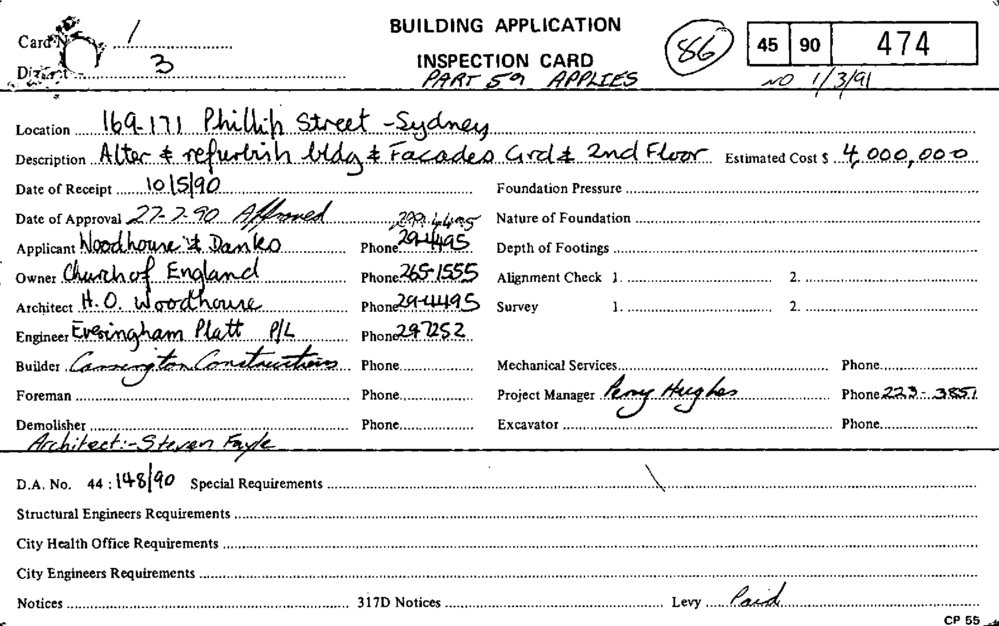 BUILDING APPLICATION
Card No. 1 INSPECTION CARD 86 45 90 474
District 3 PART 59 APPLIES NO 1/3/91
Location 169-171 Phillip Street - Sydney
Description Alter & refurbish bldg & Facades Grd & 2nd Floor Estimated Cost $ 4,000,000
Date of Receipt 10/5/90 Foundation Pressure
Date of Approval 27-7-90 Approved 299.4495 Nature of Foundation
Applicant Woodhouse & Danks Phone 29-4495 Depth of Footings
Owner Church of England Phone 265-1555 Alignment Check 1. 2.
Architect H.O. Woodhouse Phone 29-4495 Survey 1. 2.
Engineer Everingham Platt P/L Phone 297252
Builder Constructions Phone Mechanical Services Phone
Foreman Phone Project Manager Hughes Phone 223-3851
Demolisher Phone Excavator Phone
Architect:- Steven Fayle
D.A. No. 44 : 148/90 Special Requirements
Structural Engineers Requirements
City Health Office Requirements
City Engineers Requirements
Notices 317D Notices Levy Paid
CP 55